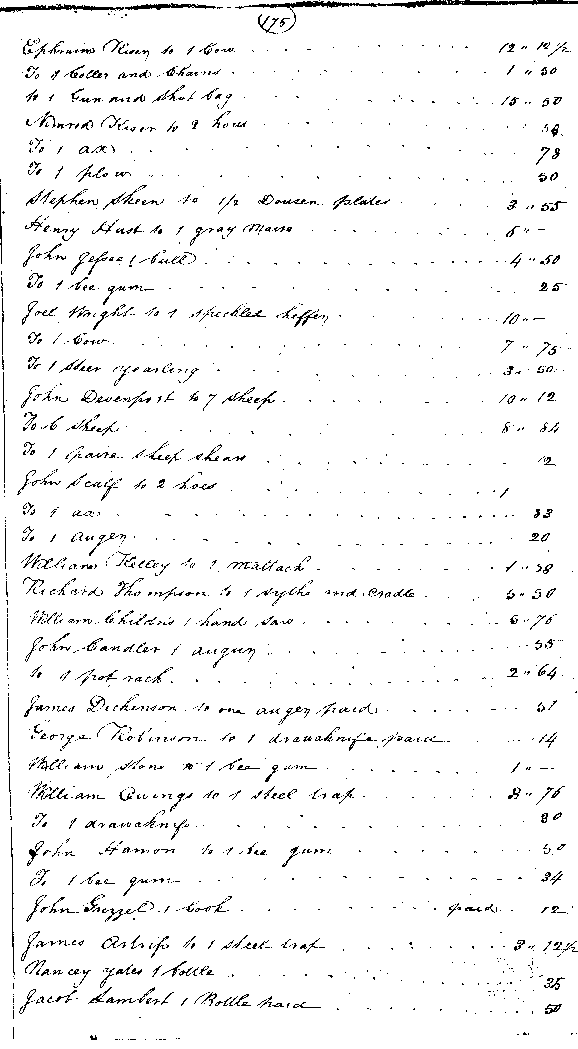 175
Ephraim Kiser to 1 Cow 12 " 12 1/2
To 1 Coller and Chains 1 " 50
to 1 Gun and Shot bag 15 " 50
Kiser to 2 hoes 58
To 1 ax 78
To 1 plow 50
Stephen Skeen to 1/2 Dousen plates 3 " 55
Henry Hust to 1 gray Mare 5 " -
John Jessee 1 bull 4 " 50
To 1 bee gum 25
Joel Wright to 1 speckled heffer 10 " -
To 1 Cow 7 " 75
To 1 Steer yearling 3 " 50
John Devenport to 7 Sheep 10 " 12
To 6 Sheep 8 " 84
To 1 paire sheep shears 12
John Scalf to 2 hoes 1
To 1 ax 33
To 1 auger 20
William Kelley to 1 mattack 1 " 38
Richard Thompson to 1 sythe and Cradle 5 " 50
William Childris 1 hand saw 6 " 76
John Candler 1 augur 55
to 1 pot rack 2 " 64
James Dickenson to one auger paid 51
George Robinson to 1 drawaknife paid 14
William Stone to 1 bee gum 1 " -
William Ewings to 1 steel trap 3 " 76
To 1 drawaknife 30
John Hamon to 1 bee gum 50
To 1 bee gum 34
John Grizzel 1 book paid 12
James Artrip to 1 steel trap 3 " 12 1/2
Nancey yates 1 bottle 35
Jacob Lambert 1 Bottle paid 50